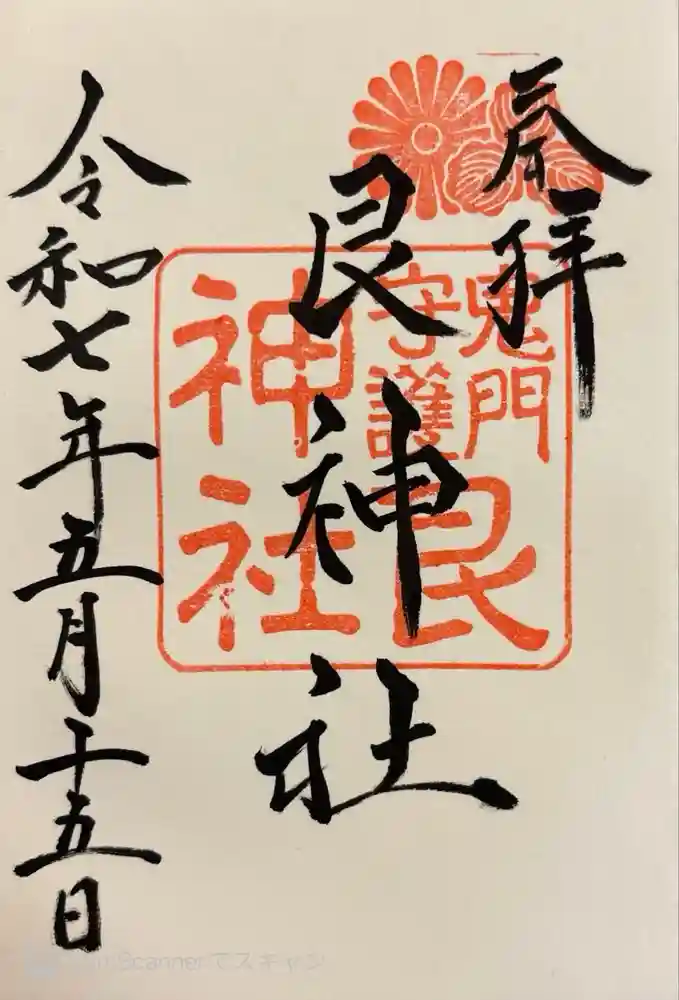 奉拝
艮神社
令和七年五月十五日
鬼門
守護
艮
神社
でスキャン